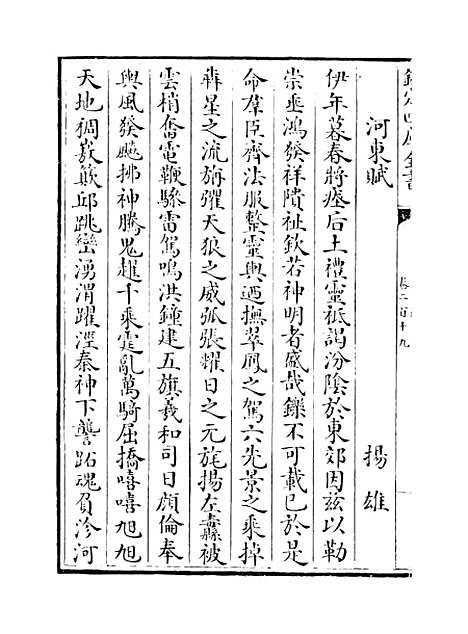 欽定四庫全書
卷二百十九
河東賦　揚雄
伊年暮春將瘞后土禮靈祇謁汾陰於東郊因茲以勒
崇垂鴻發祥隤祉欽若神明者盛哉鑠不可載已於是
命羣臣齊法服整靈輿迺撫翠鳳之駕六先景之乘掉
犇星之流旃彏天狼之威弧張耀日之元旄揚左纛被
雲梢奮電鞭驂雷駕鳴洪鐘建五旗羲和司日顔倫奉
輿風發飈拂神騰鬼趡千乘霆亂萬騎屈橋嘻嘻旭旭
天地稠㟼簸邱跳巒湧渭躍涇秦神下讋跖魂負沴河